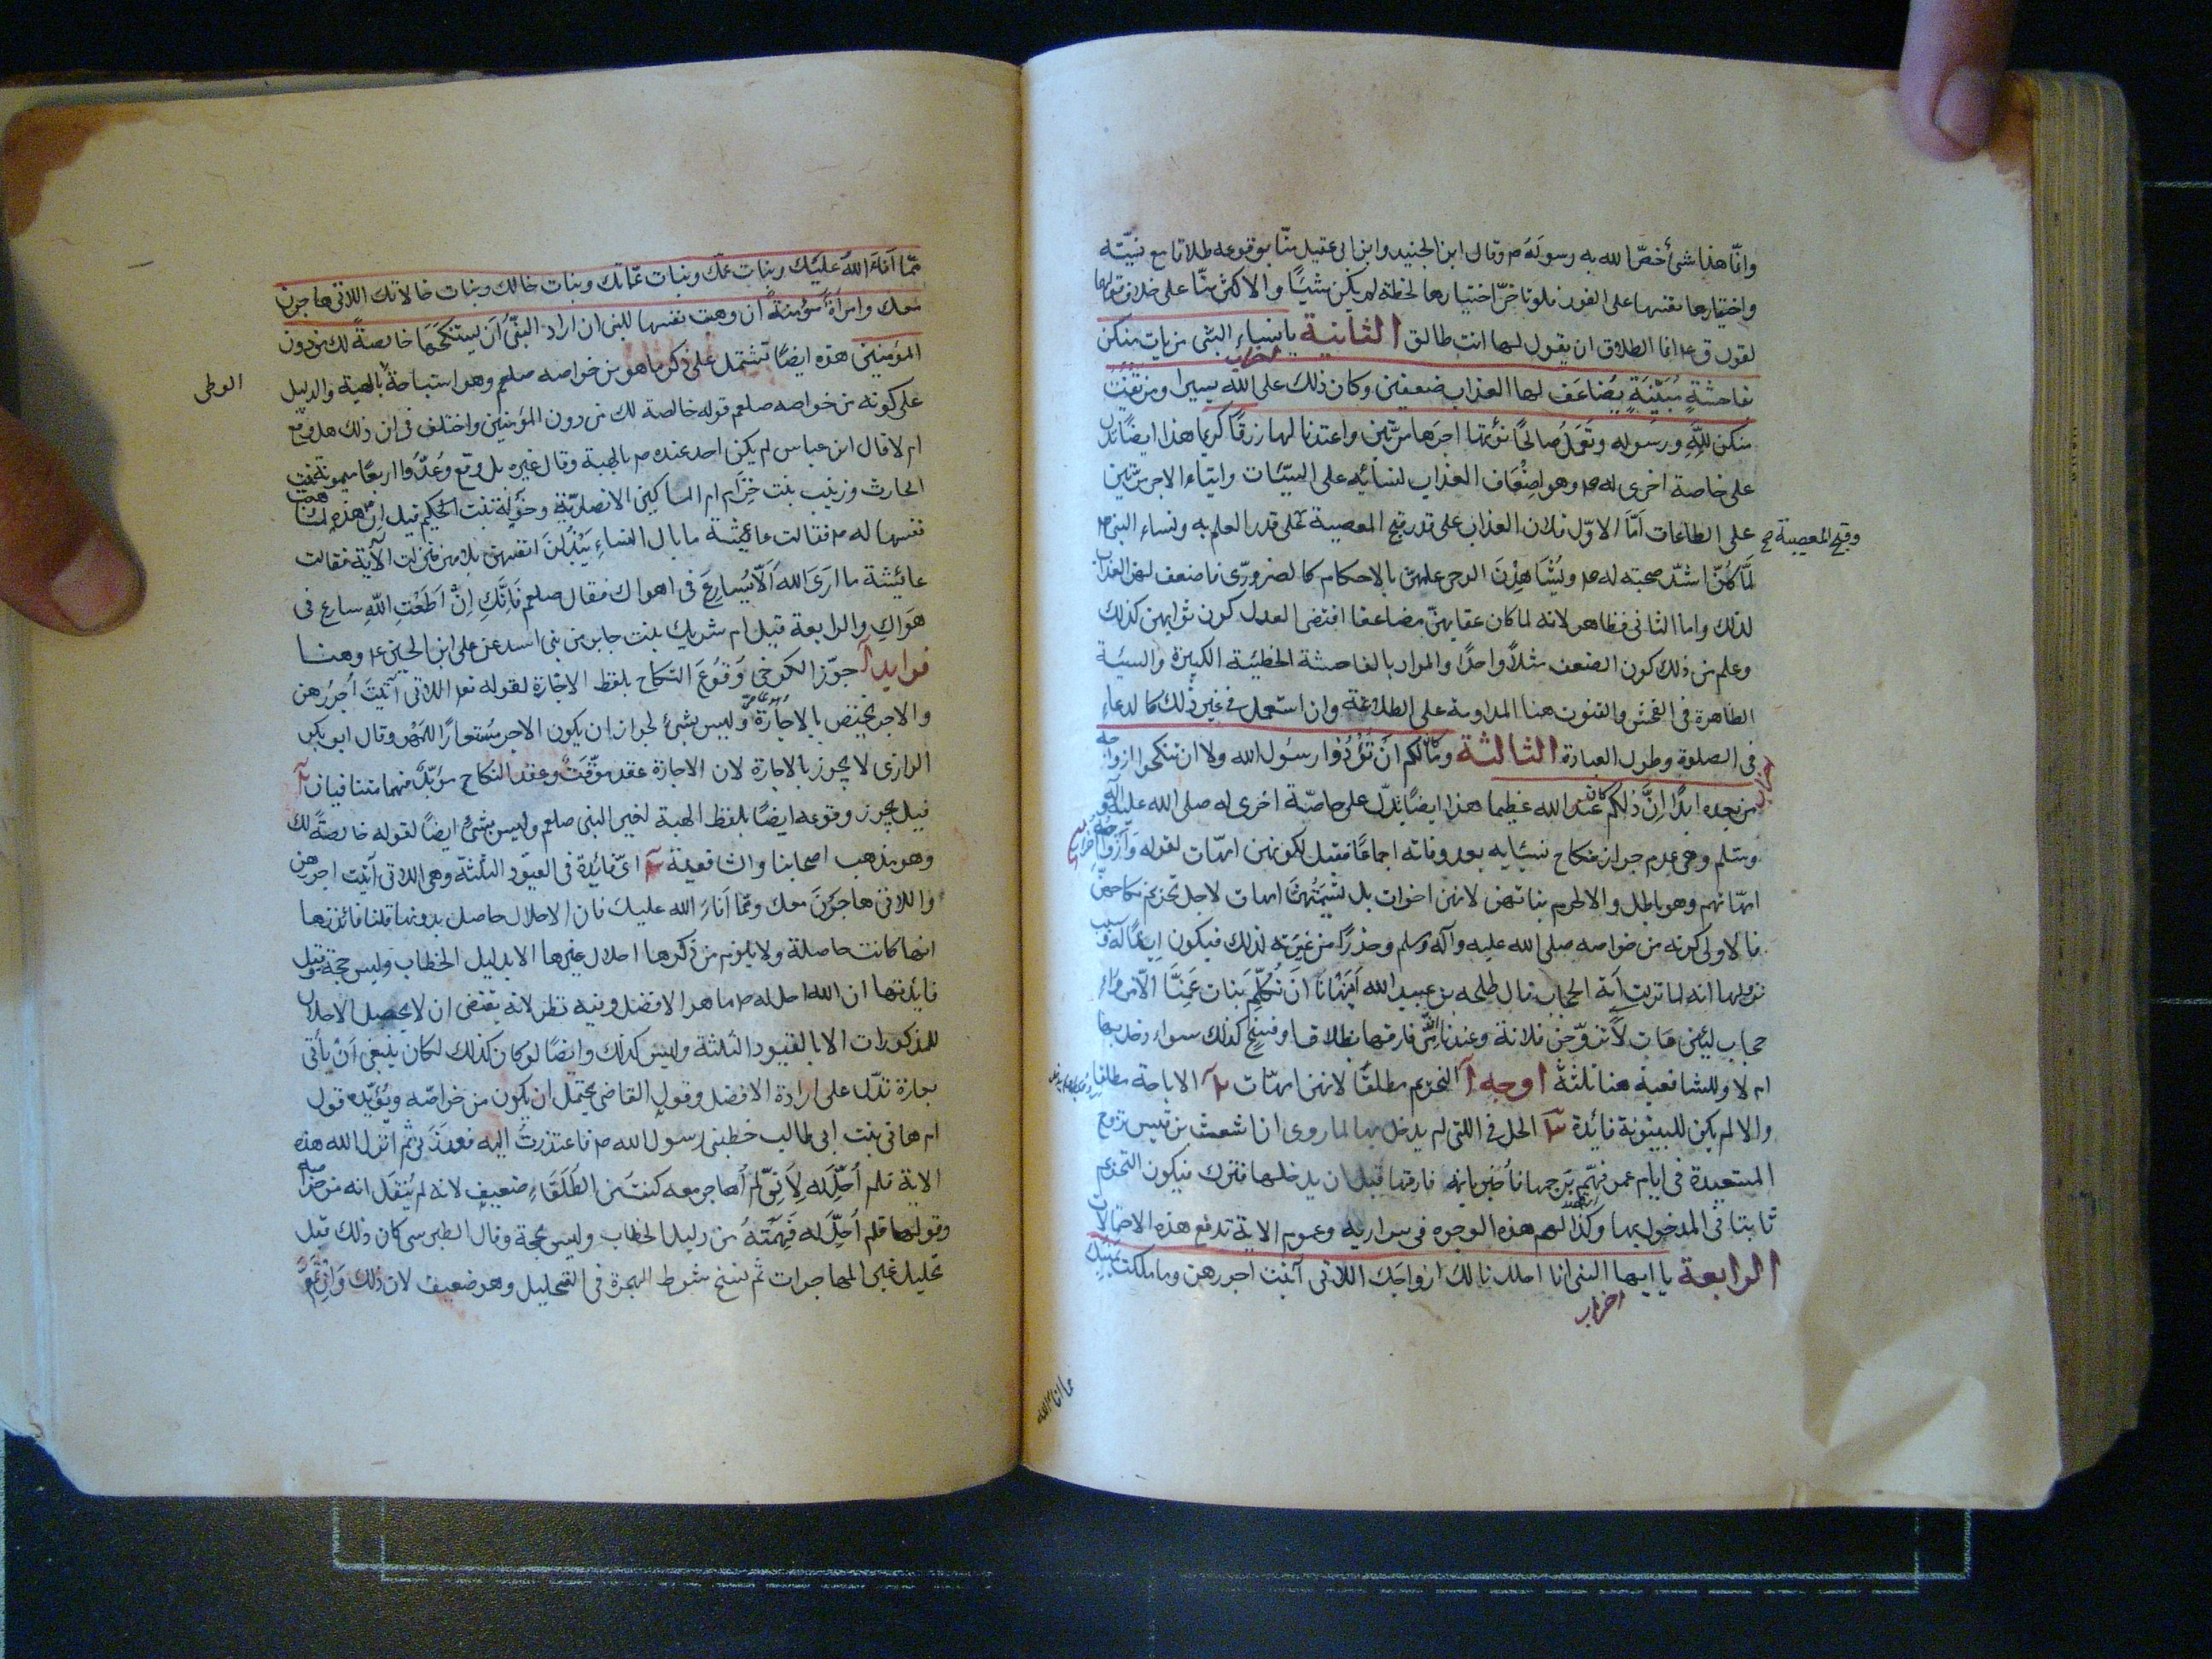 وانما هذا شئ خصّ الله به رسوله ص وقال ابن الجنيد وابن ابى عقيل منّا بوقوعه طلاقا مع نيته
واختيارها نفسها على الفور فلو تاخرّ اختيارها لحظة لم يكن شيئًا والاكثر منّا على خلاف قولهما
لقول ق ع انما الطلاق ان يقول لها انت طالق الثانية يا نساء النبى من يات منكن
بفاحشةٍ مُبَيِّنَةٍ يُضَاعَف لها العذاب ضعفين وكان ذلك على الله يسيرا ومن تَقْنُت
منكن للّهِ ورسوله وتعمل صالحًا نؤتها اجرها مرّتين واعتدنا لها رزقًا كريما هذا ايضًا تدل
على خاصة اخرى له ص وهو اضعاف العذاب لنسائه على السيّئات وايتاء الاجر مرّتين
على الطاعات اَمَّا الاوّل فلان العذاب على قدر قبح المعصية على قدر العلم به ونساء النبى ص
وقبح المعصية صح
لَمَّا كُنَّ اشدّ صحبته له ص ويُشَاهِدْنَ الوحى علمهنّ بالاحكام كالضرورىّ فاضعف لهن العذاب
لذلك واما الثانى فظاهر لانه لما كان عقابهنّ مضاعفا اقتضى العدل كون ثوابهن كذلك
وعلم من ذلك كون الضعف مثلًا واحدًا والمراد بالفاحشة الخطيئة الكبيرة والسيئة
الظاهرة فى الفحش والقنوت هنا المداومة على الطاعة وان استعمل فى غير ذلك كالدعاء
فى الصلوة وطول العبادة الثالثة وما كان لكم اَنْ تُؤْذُوا رسُول الله ولا ان تنكحوا ازواجه
من بعده ابدًا اِنَّ ذلكم كان عند الله عظيما هذا ايضًا يدلّ على خاصّة اخرى له صلى الله عليه وآله
وسلم وهى عدم جواز نكاح نسايه بعد وفاته اجماعًا فقيل لكونهن امهّات لقوله وَاَزْوَاجُهُ
امهّاتهم وهو باطل والا لحرم بناتهن لانهن اخوات بل تسميتهنّ امهات لاجل تحريم نكاحهنّ
فالاولى كونه من خواصه صلى الله عليه وآله وسلم وحذرًا من غيرته لذلك فيكون ايذاءً له وسبب
نزولها انه لما نزلت آية الحجاب قال طلحه بن عبيد الله اَيَنْهَانَا اَنْ نُكَلِّمَ بَنات عَمِنَّا الّا من وراء
حجاب لئِن مَات لَاَتزوّجنّ فلانة وعندنا ان فارقها بطلاق او فسخ كذلك سواء دخل بها
ام لا وللشافعية هنا ثلثةُ اوجه آ التحريم مطلقًا لانهن امهّات ٢ الاباحة مطلقا
والا لم يكن للبينونة فائدة ٣ الحل فى اللتى لم يدخل بها لما روى ان اشعث بن قيس تزوج
المستعيذة فى ايام عمر فهَمّ برجمها فاُخبر بانه فارقها قبل ان يدخلها فترك فيكون التحريم
ثابتا فى المدخول بها وكذا لهم هذه الوجوه فى سواريه وعموم الاية تدفع هذه الاحتمالات
الرابعة يا ايها النبى انا احللنا لك ازواجك اللاتى آتيت اجورهن وما ملكت يمينك
احزاب
مما افاء الله
ممّا اَفاءَ اللهُ عليك وبنات عمّك وبنات عمّاتك وبنات خالك وبنات خالاتك اللاتى هاجرن
معك وامرأةً مؤمنةً ان وهبت نفسها للنبى ان اراد النبىّ اَن يستنكحَهَا خالصةً لك من دون
المؤمنين هذه ايضًا تشتمل على ذكر ما هو من خواصه صلعم وهو استباحة بالهبة والدليل
الوطى
على كونه من خواصه صلعم قوله خالصة لك من دون المؤمنين واختلف فى ان ذلك هل وقع
ام لا قال ابن عباس لم يكن احد عنده ص بالهبة وقال غيره بل وقع وعُدُّوا اربعًا ميمونة بنت
الحارث وزينب بنت خزام ام المساكين الانصاريّة وخَوْلة بنت الحكيم قيل ان هذه لما وهبت
نفسها له ص فقالت عائشة ما بال النساءِ يَبْذُلْنَ انفسهن بلا مهر فنزلت الآية فقالت
عائيشة ما ارَى الله اَلّا يُسارِعَ فى هواك فقال صلعم فَاِنَّكِ اِنْ اَطَعْتِ اللهِ سارع فى
هَوَاكِ والرابعة قيل ام شريك بنت جابر من بنى اسد عن على ابن الحسين ع وهنا
فوايد آ جوّز الكوخى وَقُوعَ النكاح بلفظ الاجارة لقوله تعا اللاتى آتيتَ اُجورهن
والاجر يختص بالاجارة وليس بشئ لجواز ان يكون الاجر مُستعارًا للمَهْر وقال ابو بكر
الرازى لا يجوز بالاجارة لان الاجارة عقد موَقّتٌ وعقد النكاح مؤبدٌ فهما متنافيان ٢
قيل يجوز وقوعه ايضًا بلفظ الهبة لغير النبى صلعم وليس بشئ ايضًا لقوله خالصةً لك
وهو مذهب اصحابنا والشافعية ٣ اىّ فائدة فى القيود الثلثة وهى اللاتى آتيت اجورهن
واللاتى هاجرَنَ معك وممّا اَفاءَ الله عليك فان الاحلال حاصل بدونها قلنا فائدتها
انها كانت حاصلة ولا يلزم من ذكرها احلال غيرها الا بدليل الخطاب وليس حجة وقيل
فائدتها ان الله احل له ص ما هو الافضل وفيه نظر لانه يقتضى ان لا يحصل الاحلال
للمذكورات الا بالقيود الثلثة وليس كذلك وايضًا لو كان كذلك لكان ينبغى اَنْ يأتى
بعبارة تدلّ على ارادة الافضل وقول القاضى يحتمل ان يكون من خواصّه ويُؤَيّده قول
ام هانى بنت ابى طالب خطبنى رسول الله ص فاعتذرتُ اليه فعذرَنى ثم انزل الله هذه
الاية فلم اَحِلَّ له لِاَنِّى لَمْ اُهاجر معه كنتُ من الطُلَقَاءِ ضعيف لانه لم يُنقَل انه من خواصّه
وقولها فلم اُحِلّ له فَهِمَتْهُ من دليل الخطاب وليس بحجة وقال الطبرسى كان ذلك قبل
تحليل غير المهاجرات ثم نسخ شرط الهجرة فى التحليل وهو ضعيف لان ذلك